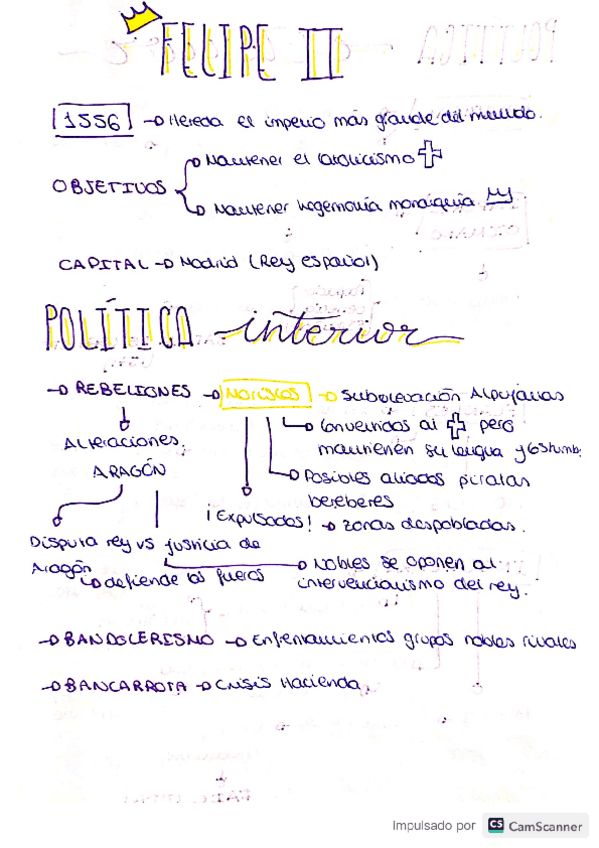 FELIPE II
1556 → Hereda el imperio más grande del mundo.
OBJETIVOS
→ Mantener el catolicismo
→ Mantener hegemonía monarquía
CAPITAL → Madrid (Rey español)
POLÍTICA interior
→ REBELIONES → MORISCOS → Sublevación Alpujarras
→ Convertidos al ✝ pero
mantienen su lengua y costumb.
→ Posibles aliados piratas
bereberes
¡Expulsados! → zonas despobladas.
Alteraciones
ARAGÓN
Disputa rey vs justicia de
Aragón → defiende los fueros
→ Nobles se oponen al
intervencionismo del rey.
→ BANDOLERISMO → Enfrentamientos grupos nobles rivales
→ BANCARROTA → Crisis Hacienda.
Impulsado por CS CamScanner